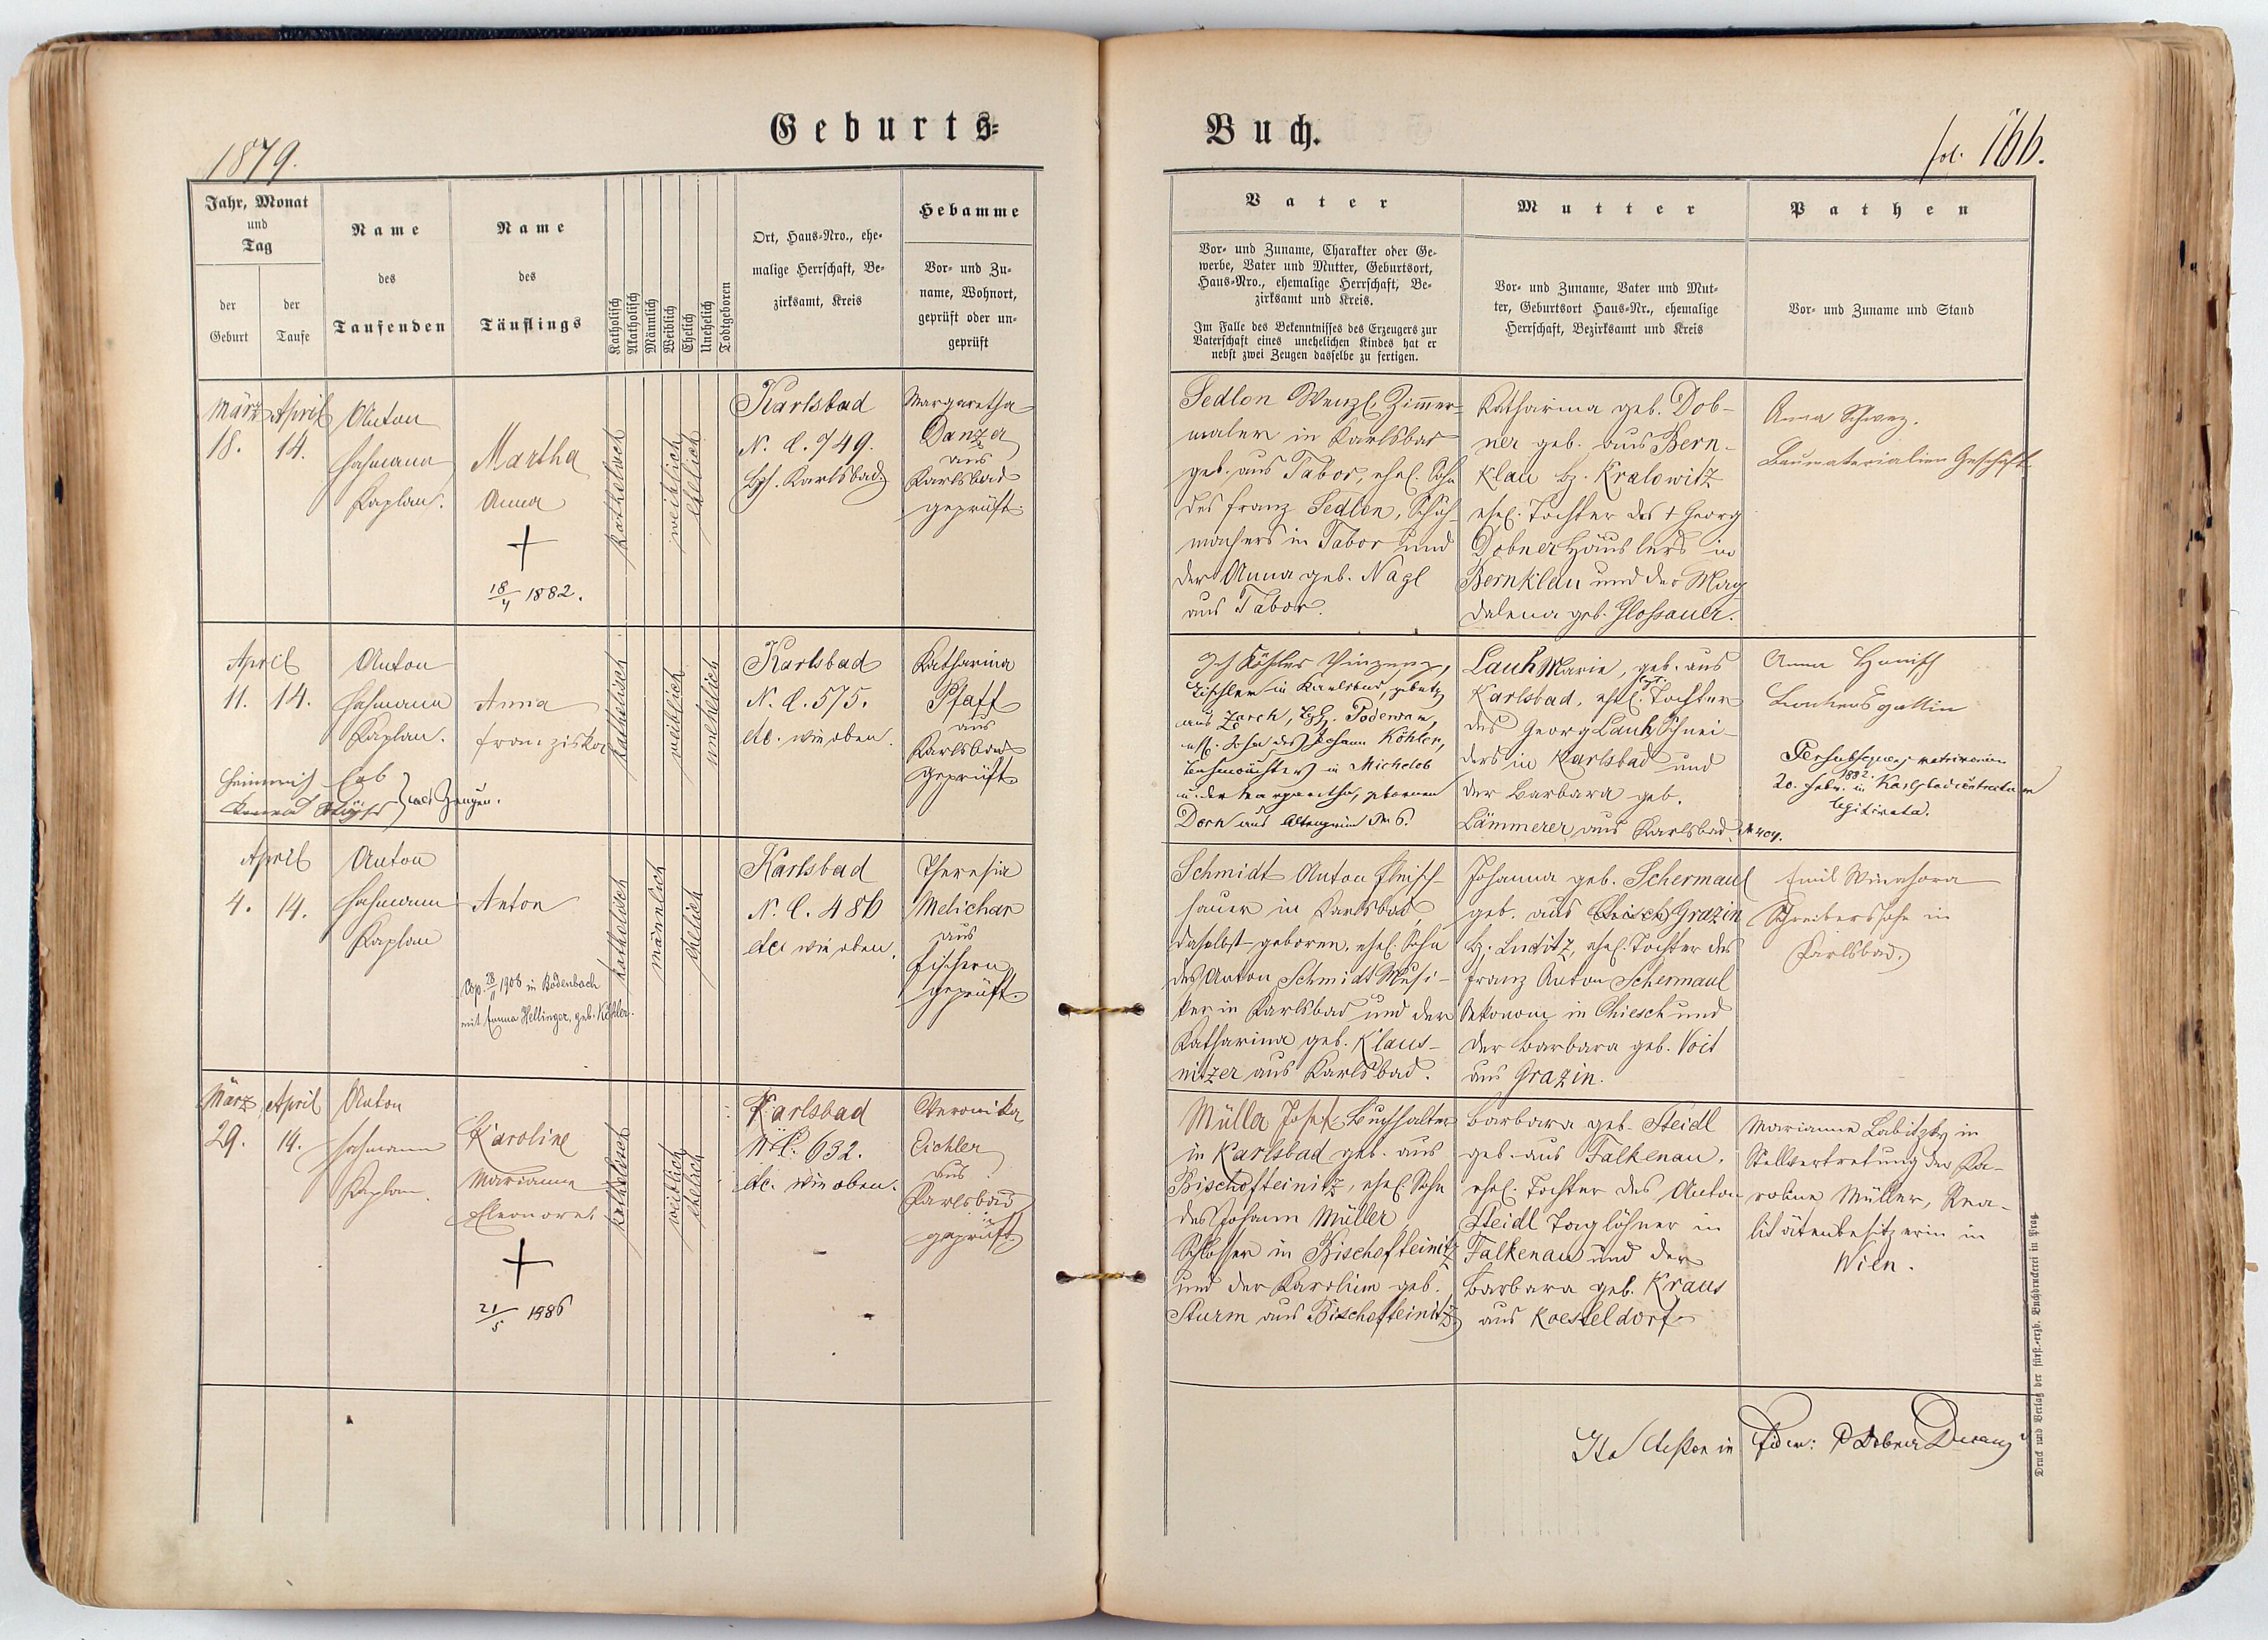 1879.
Geburts-
Buch.
fol. 166.
Jahr, Monat
und
Tag
der
Geburt
der
Taufe
Name
des
Taufenden
Name
des
Täuflings
Katholisch
Akatholisch
Männlich
Weiblich
Ehelich
Unehelich
Todtgeboren
Ort, Haus-Nro., ehe-
malige Herrschaft, Be-
zirksamt, Kreis
Hebamme
Vor- und Zu-
name, Wohnort,
geprüft oder un-
geprüft
Vater
Vor- und Zuname, Charakter oder Ge-
werbe, Vater und Mutter, Geburtsort,
Haus-Nro., ehemalige Herrschaft, Be-
zirksamt und Kreis.
Im Falle des Bekenntnisses des Erzeugers zur
Vaterschaft eines unehelichen Kindes hat er
nebst zwei Zeugen dasselbe zu fertigen.
Mutter
Vor- und Zuname, Vater und Mut-
ter, Geburtsort Haus-Nr., ehemalige
Herrschaft, Bezirksamt und Kreis
Pathen
Vor- und Zuname und Stand
März
18.
April
14.
Anton
Hahmann
Kaplan.
Martha
Anna
18/4 1882.
katholisch
weiblich
ehelich
Karlsbad
N. C. 749.
Bzh. Karlsbad.
Margaretha
Danzer
aus
Karlsbad
geprüft.
Sedlon Wenzl, Zimmer-
maler in Karlsbad
geb. aus Tabor, ehel. Sohn
des Franz Sedlon, Schuh-
machers in Tabor und
der Anna geb. Nagl
aus Tabor.
Katharina geb. Dob-
ner geb. aus Bern-
klau Bz. Kralowitz
ehel. Tochter des + Georg
Dobner Häuslers in
Bernklau und der Mag
dalena geb. Glossauer.
Anna Schwarz.
Baumaterialien Geschäft.
April
11. 14.
Anton
Hahmann
Kaplan.
Anna
Franziska
Heinrich
als Zeugen.
katholisch
weiblich
unehelich
Karlsbad
N. C. 575.
etc. wie oben.
Katharina
Pfaff
aus
Karlsbad
geprüft.
Ich Köhler Vinzenz,
Tischler in Karlsbad, gebürtig
aus Zarch, Bzh. Podersam,
ehl. Sohn des Johann Köhler,
in Michelob
u. der Margaretha, gebornen
Dorn aus
Lauh Marie, geb. aus
Karlsbad, ehel. Tochter
des Georg Lauh, Schnei-
ders in Karlsbad und
der Barbara geb.
Lämmerer aus Karlsbad.
Anna Hanisch
Per subsequens matrimonium
20. Febr. 1882 in Karlsbad contractum
legitimata.
April
4. 14.
Anton
Hahmann
Kaplan
Anton
Cop. 28/11 1906 in Bodenbach
mit Emma Hellinger, geb. Köhler.
katholisch
männlich
ehelich
Karlsbad
N. C. 486
etc. wie oben.
Theresia
Melichar
aus
Fischern
geprüft.
Schmidt Anton Fleisch-
hauer in Karlsbad,
daselbst geboren, ehel. Sohn
des Anton Schmidt Musi-
ker in Karlsbad und der
Katharina geb. Klaus-
nitzer aus Karlsbad.
Johanna geb. Schermaul
geb. aus Grazin
Bz. Luditz, ehel. Tochter des
Franz Anton Schermaul
Oekonom in Chiesch und
der Barbara geb. Voit
aus Grazin.
Emil Winahora
Schreiberssohn in
Karlsbad.
März
29.
April
14.
Anton
Hahmann
Kaplan.
Karoline
Marianna
Eleonora.
21/5 1986
katholisch
weiblich
ehelich
Karlsbad
N. C. 632.
etc. wie oben.
Veronika
Eichler
aus
Karlsbad
geprüft.
Müller Josef Buchhalter
in Karlsbad geb. aus
Bischofteinitz, ehel. Sohn
des Johann Müller
Schlosser in Bischofteinitz
und der Karolina geb.
Sturm aus Bischofteinitz.
Barbara geb. Steidl
geb. aus Falkenau,
ehel. Tochter des Anton
Steidl Taglöhner in
Falkenau und der
Barbara geb. Kraus
aus Koesteldorf.
Marianna Labitzky in
Stellvertretung der Ka-
roline Müller, Rea-
litätenbesitzerin in
Wien.
Ita testor in fidem: P Dobner Decanus
Druck und Verlag der fürst.-erzb. Buchdruckerei in Prag.